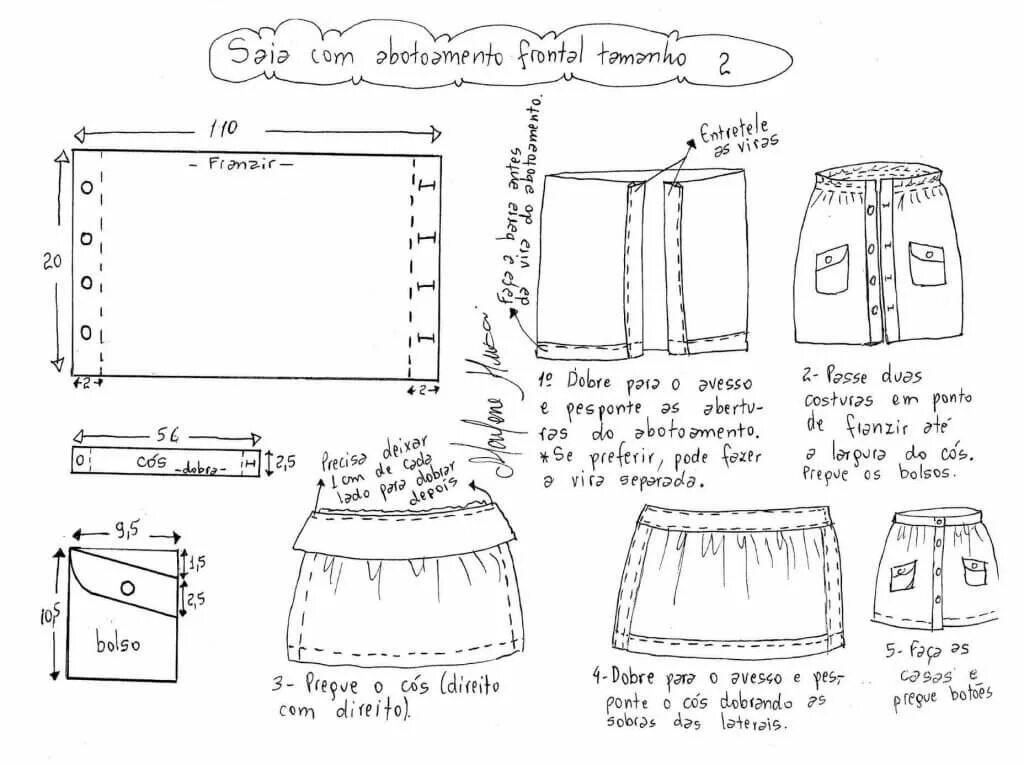 Saia com abotoamento frontal tamanho 2
110
- Franzir -
20
2
2
56
cós -dobra-
2,5
9,5
1,5
2,5
10,5
bolso
Faça a barra antes
da vira do abotoamento.
Entretele
as viras
1º Dobre para o avesso
e pesponte as abertu-
ras do abotoamento.
*Se preferir, pode fazer
a vira separada.
2- Passe duas
costuras em ponto
de franzir até
a largura do cós.
Pregue os bolsos.
Precisa deixar
1 cm de cada
lado para dobrar
depois
3- Pregue o cós (direito
com direito).
4- Dobre para o avesso e pes-
ponte o cós dobrando as
sobras das laterais.
5- Faça as
casas e
pregue botões
Marlene